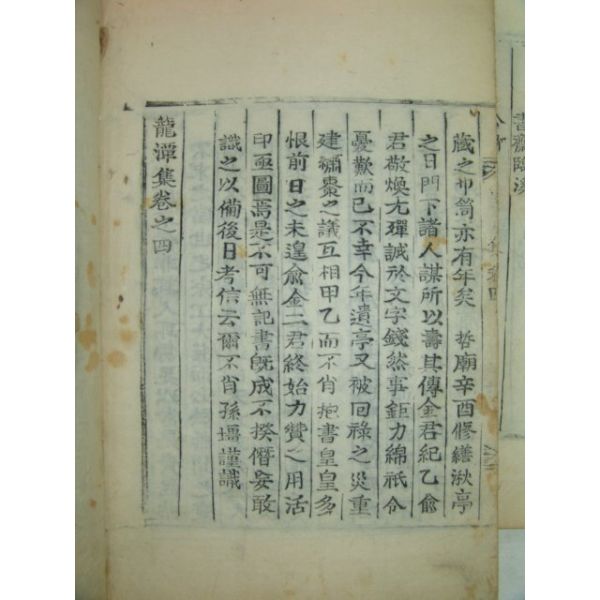 藏之巾笥亦有年矣 哲廟辛酉修繕湫亭
之日門下諸人謀所以壽其傳金君紀乙兪
君敬煥尤殫誠於文字錢然事鉅力綿祇令
憂歎而已不幸今年遺亭又被回祿之災重
建繡棗之議互相甲乙而不肖抱書皇皇多
恨前日之未遑兪金二君終始力贊之用活
印亟圖焉是不可無記書旣成不揆僭妄敢
識之以備後日考信云爾不肖孫壃謹識
龍潭集卷之四